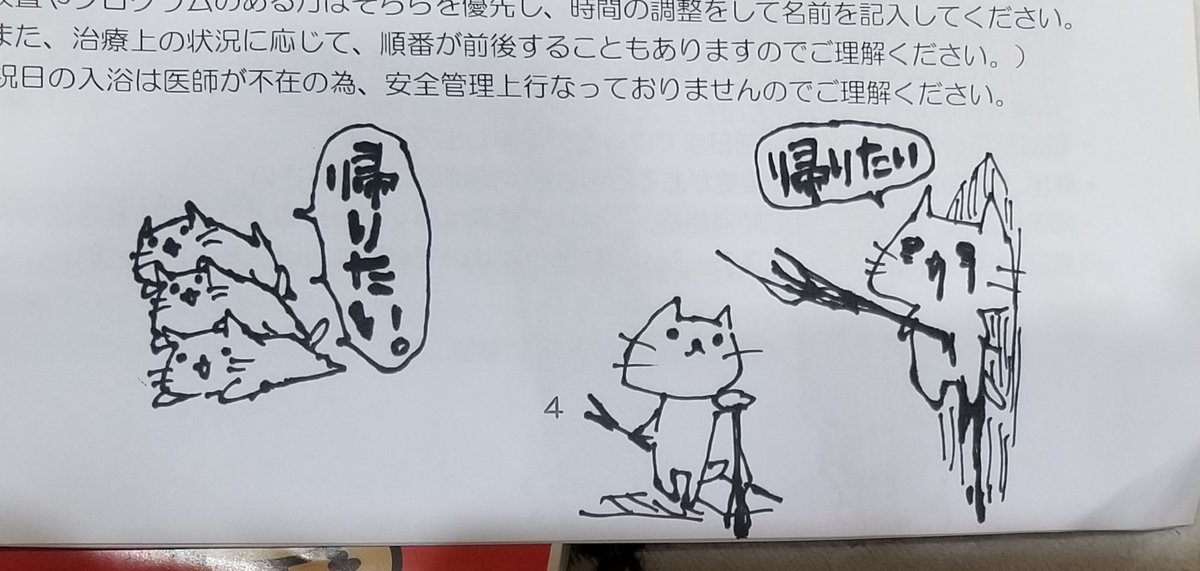 プログラムのある方はそちらを優先し、時間の調整をして名前を記入してください。
また、治療上の状況に応じて、順番が前後することもありますのでご理解ください。）
祝日の入浴は医師が不在の為、安全管理上行なっておりませんのでご理解ください。
帰りたい！
帰りたい
4